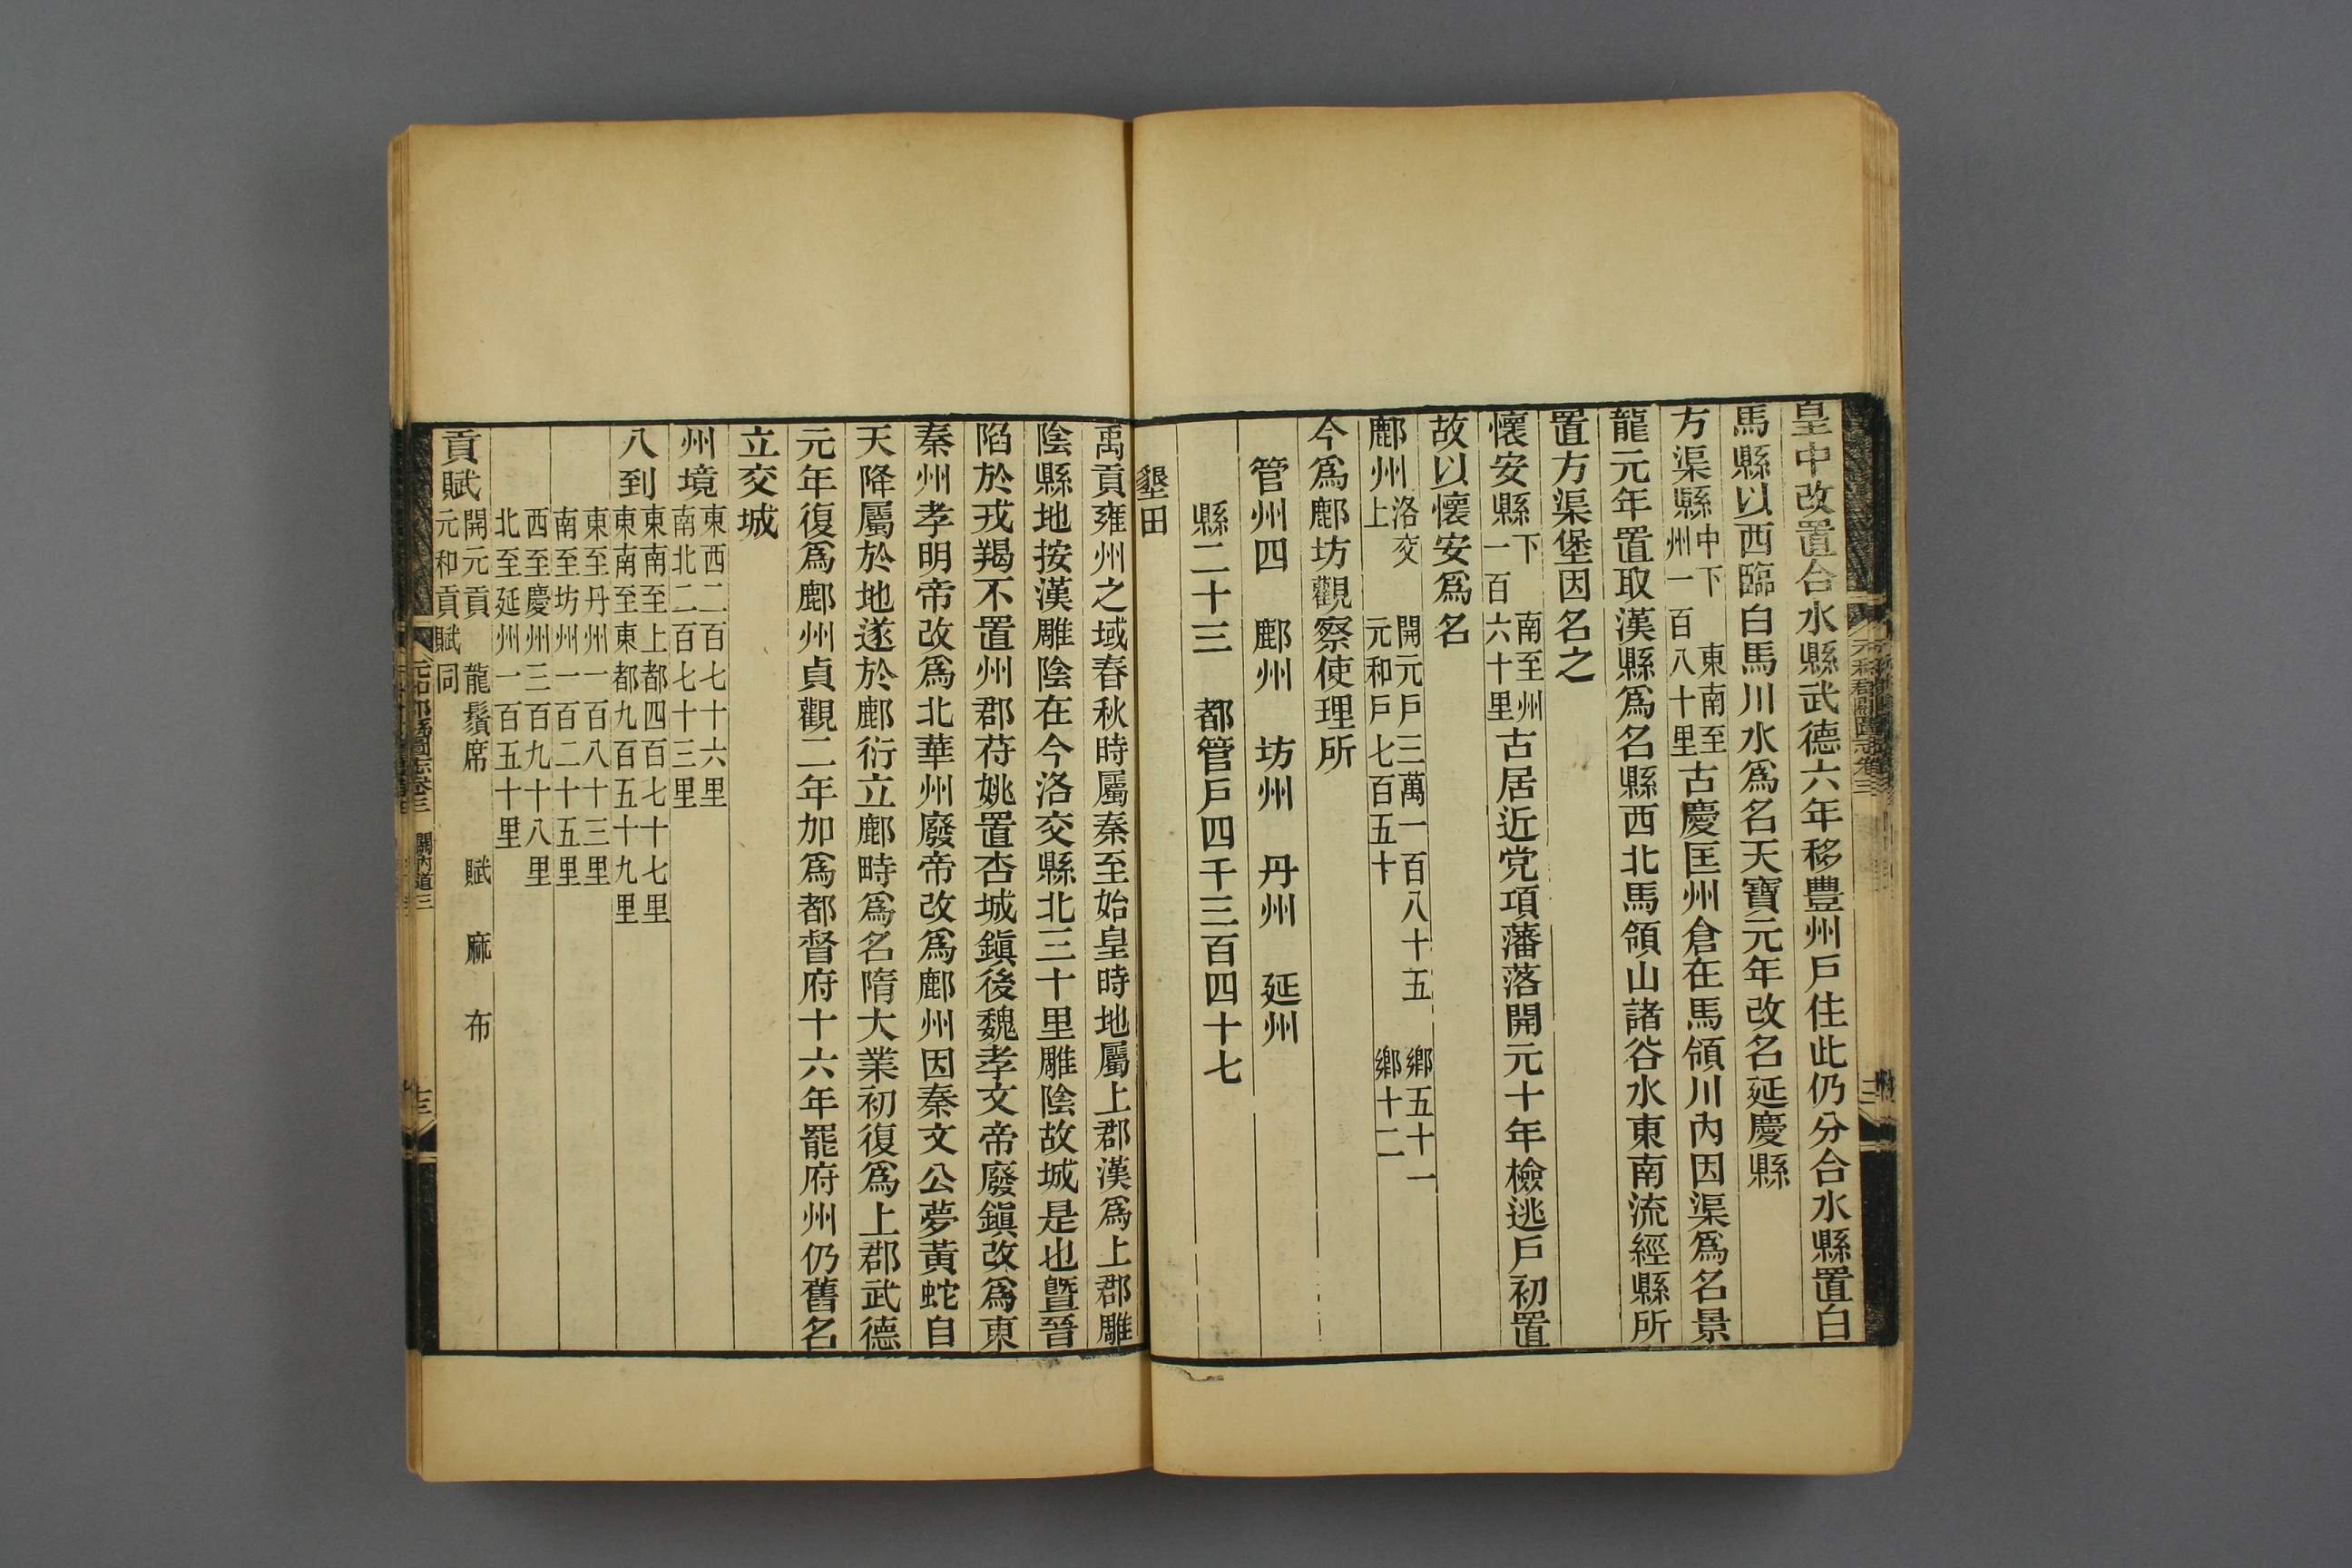 皇中改置合水縣武德六年移豊州戶住此仍分合水縣置白
馬縣以西臨白馬川水爲名天寶元年改名延慶縣
方渠縣中下 東南至州一百八十里古慶匡州倉在馬領川內因渠爲名景
龍元年置取漢縣爲名縣西北馬領山諸谷水東南流經縣所
置方渠堡因名之
懷安縣下 南至州一百六十里古居近党項藩落開元十年檢逃戶初置
故以懷安爲名
鄜州洛交上 開元戶三萬一百八十五 鄉五十一 元和戶七百五十 鄉十二
今爲鄜坊觀察使理所
管州四 鄜州 坊州 丹州 延州
縣二十三 都管戶四千三百四十七
墾田
禹貢雍州之域春秋時屬秦至始皇時地屬上郡漢爲上郡雕
陰縣地按漢雕陰在今洛交縣北三十里雕陰故城是也曁晉
陷於戎羯不置州郡苻姚置杏城鎭後魏孝文帝廢鎭改爲東
秦州孝明帝改爲北華州廢帝改爲鄜州因秦文公夢黃蛇自
天降屬於地遂於鄜衍立鄜畤爲名隋大業初復爲上郡武德
元年復爲鄜州貞觀二年加爲都督府十六年罷府州仍舊名
立交城
州境東西二百七十六里南北二百七十三里
八到東南至上都四百七十七里東南至東都九百五十九里
東至丹州一百八十三里南至坊州一百二十五里
西至慶州三百九十八里北至延州一百五十里
貢賦開元貢 龍鬚席 賦 麻 布元和貢賦同
元和郡縣圖志卷三 關內道三 十三